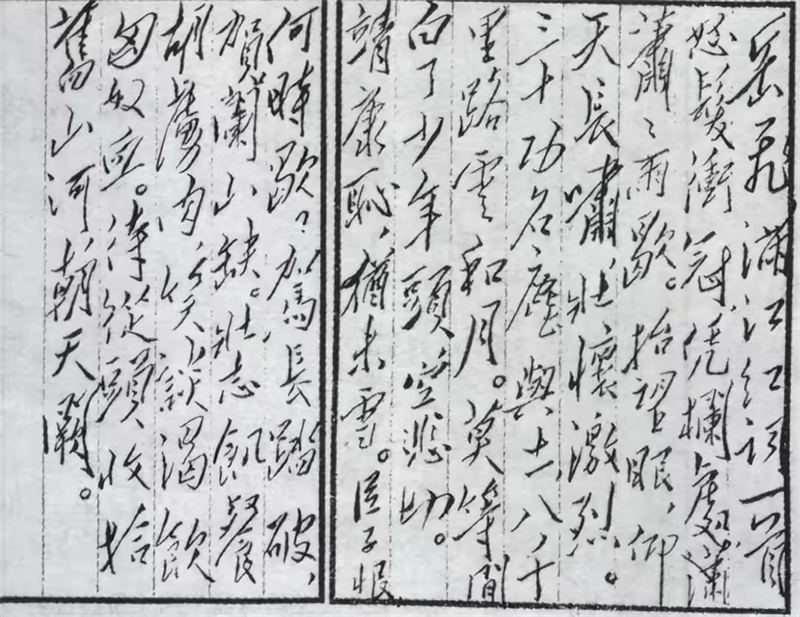 岳飛滿江紅詞一首
怒髮衝冠，凭欄處，瀟
瀟〻雨歇。抬望眼，仰
天長嘯，壯懷激烈。
三十功名塵與土，八千
里路雲和月。莫等閒
白了少年頭空悲切。
靖康恥，猶未雪。臣子恨
何時歇？駕長踏破，
賀蘭山缺。壯志飢餐
胡虜肉，笑談渴飲
匈奴血。待從頭收拾
舊山河，朝天闕。